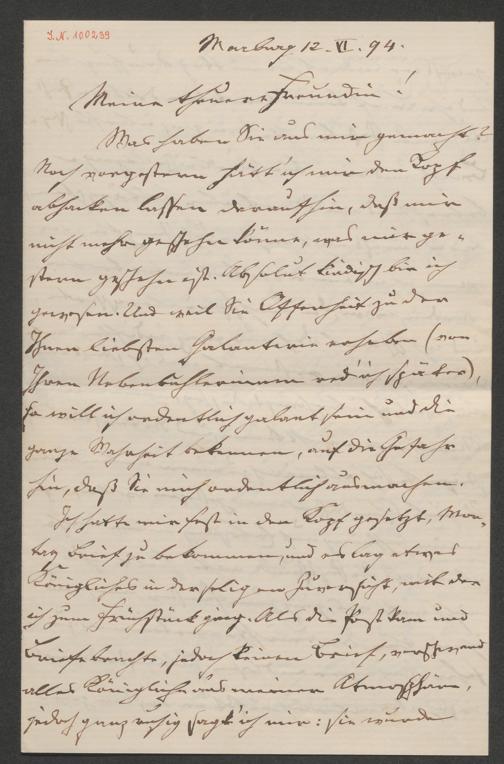 I.N. 100239
Marburg 12. VI. 94.
Meine theuere Freundin!
Was haben Sie aus mir gemacht?
Noch vorgestern hätt' ich mir den Kopf
abhacken lassen daraufhin, daß mir
nicht mehr geschehn könne, was mir ge-
stern geschehn ist. Absolut kindisch bin ich
gewesen. Und weil Sie Offenheit zu der
Ihnen liebsten Galanterie erheben (von
Ihren Nebenbuhlerinnen red' ich später),
so will ich ordentlich galant sein und die
ganze Wahrheit bekennen, auf die Gefahr
hin, daß Sie mich ordentlich auslachen.
Ich hatte mir fest in den Kopf gesetzt, Mon-
tag Brief zu bekommen, und es lag etwas
Königliches in der seligen Zuversicht, mit der
ich zum Frühstück ging. Als die Post kam und
Briefe brachte, jedoch keinen Brief, verschwand
alles Königliche aus meiner Atmosphäre,
jedoch ganz ruhig sagt' ich mir: sie wurde